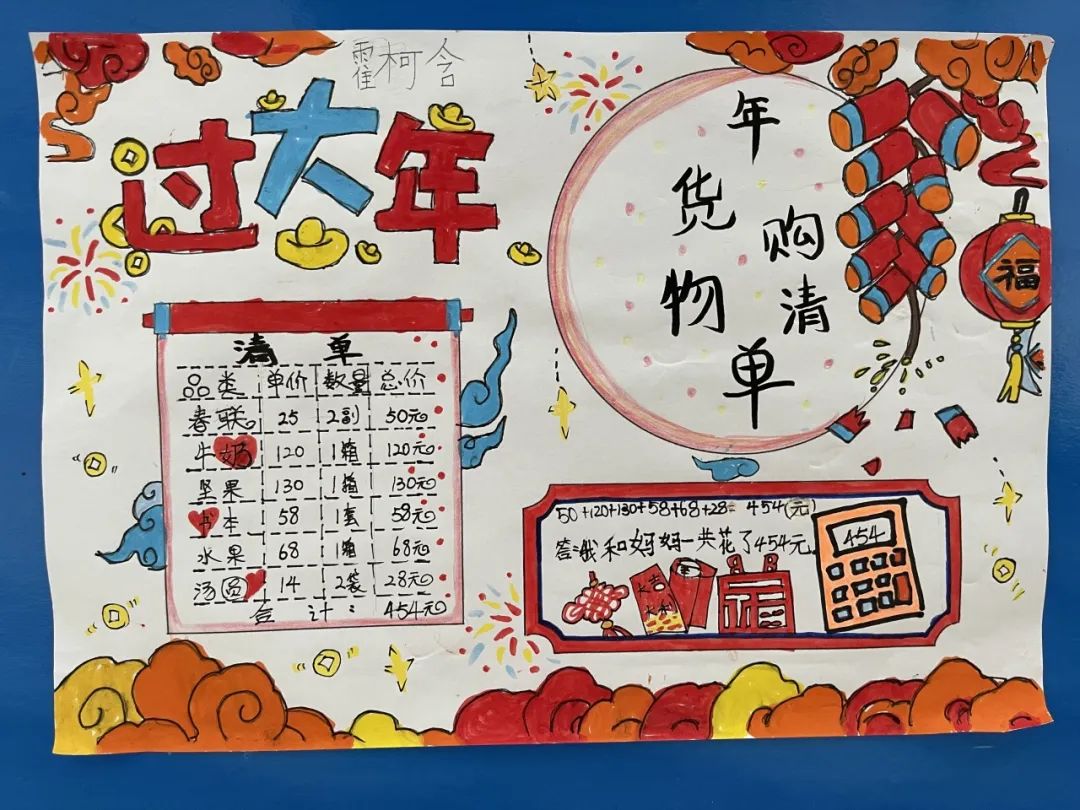 霍柯含
过大年
清单
品类 单价 数量 总价
春联 25 2副 50元
牛奶 120 1箱 120元
坚果 130 1箱 130元
书本 58 1套 58元
水果 68 1箱 68元
汤圆 14 2袋 28元
合计: 454元
年货购物清单
福
50+120+130+58+68+28=454(元)
答:我和妈妈一共花了454元。
454
大吉
大利
福